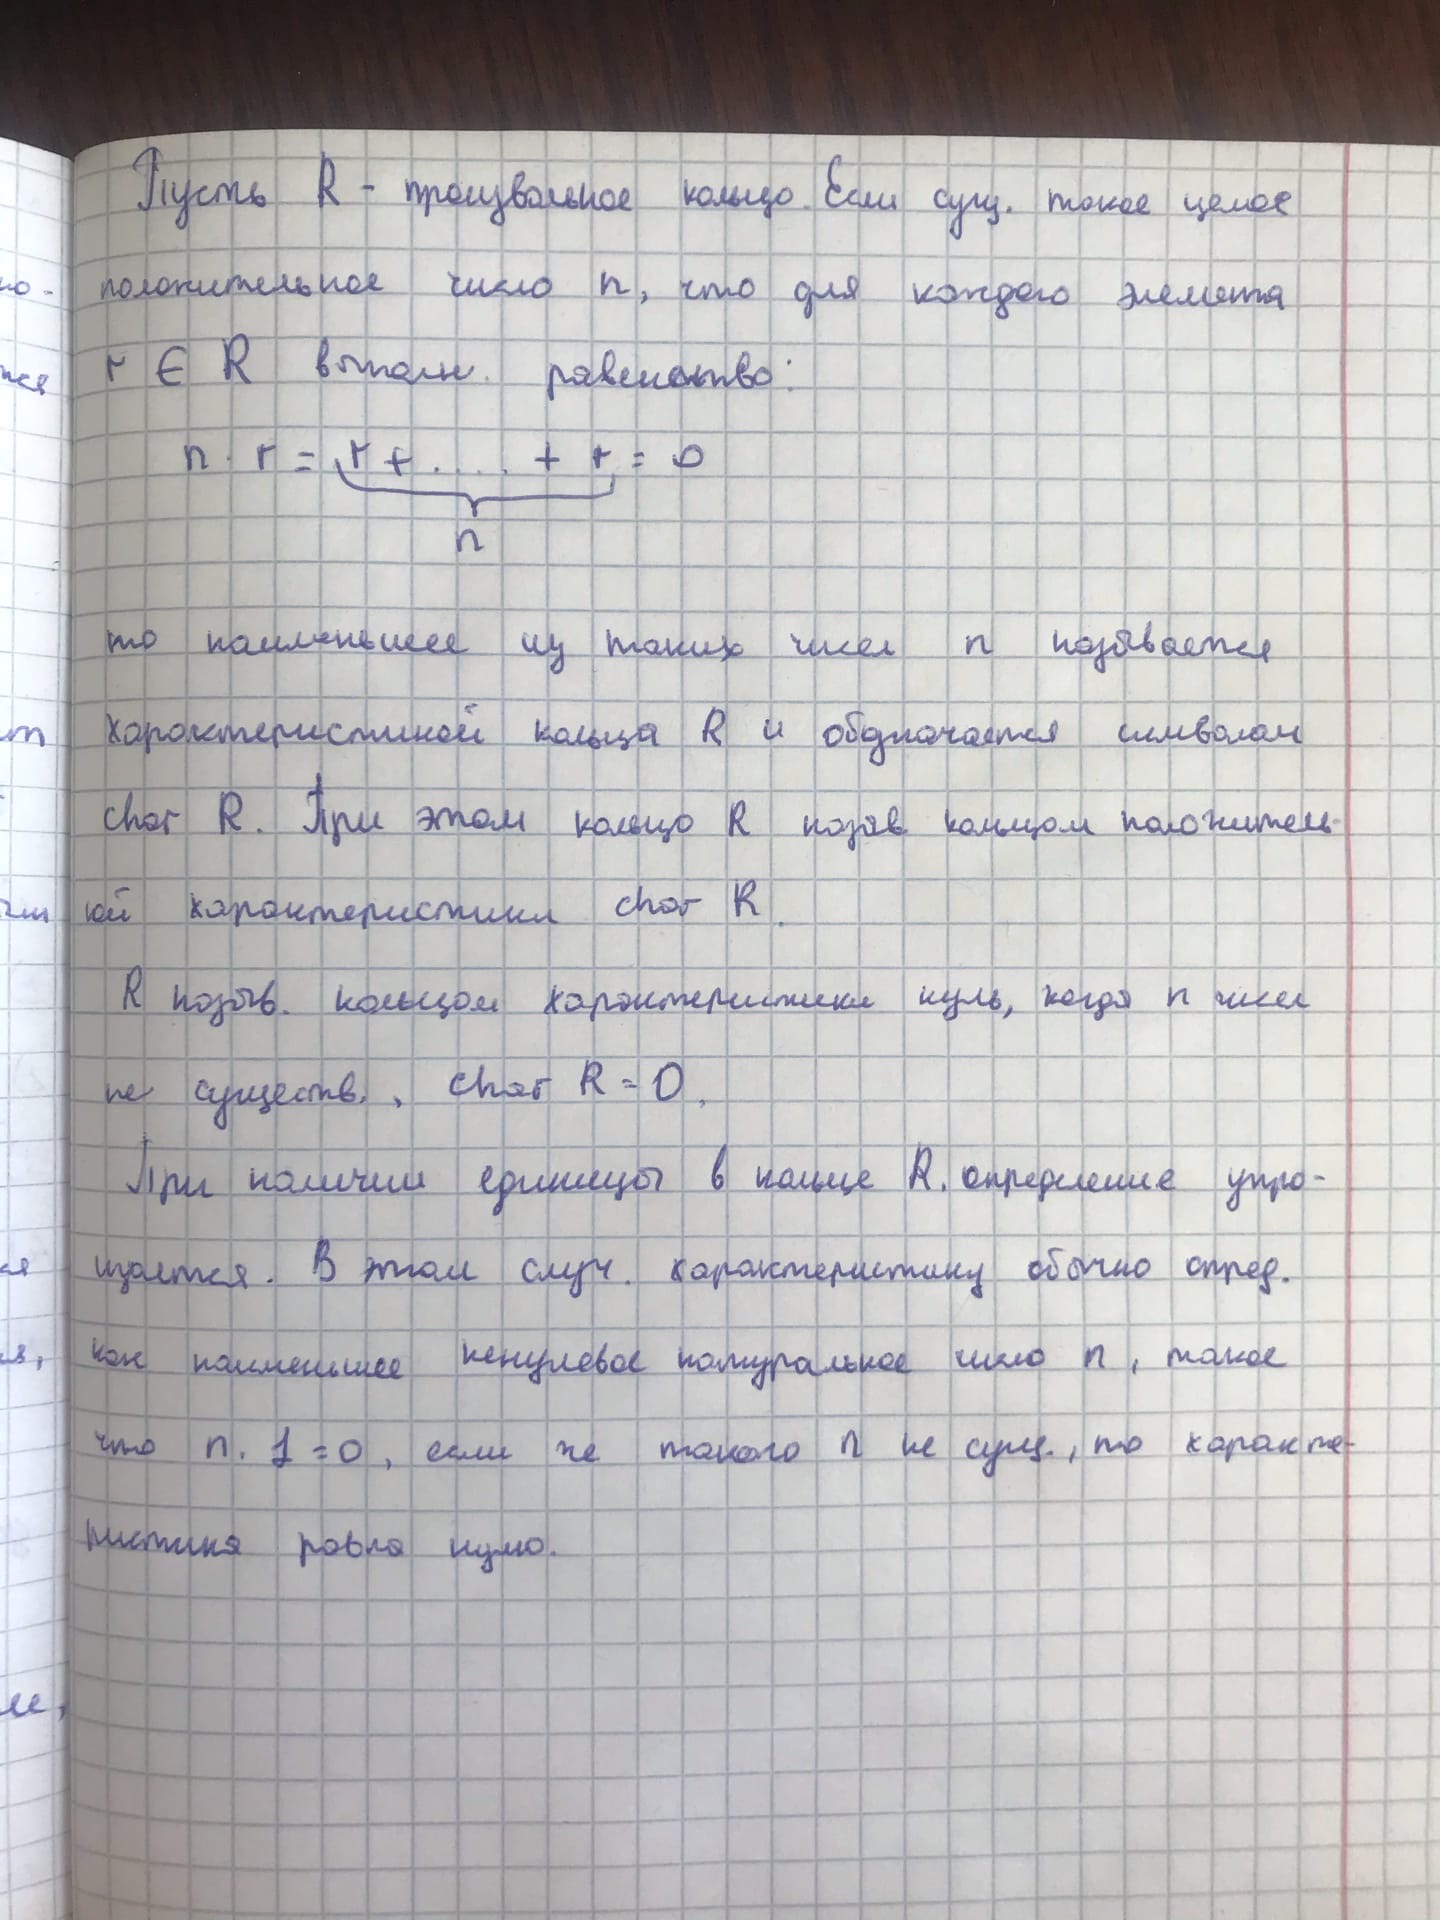 Пусть R - произвольное кольцо. Если сущ. такое целое
положительное число n, что для каждого элемента
r ∈ R выполн. равенство:
n · r = r + .... + r = 0
n
то наименьшее из таких чисел n называется
характеристикой кольца R и обозначается символом
char R. При этом кольцо R назыв кольцом положитель-
ной характеристики char R.
R назыв. кольцом характеристики нуль, когда n чисел
не существ., char R = 0.
При наличии единицы в кольце R. определение упро-
щается. В этом случ. характеристику обычно опред.
как наименьшее ненулевое натуральное число n, такое
что n · 1 = 0, если же такого n не сущ., то характе-
ристика равна нулю.